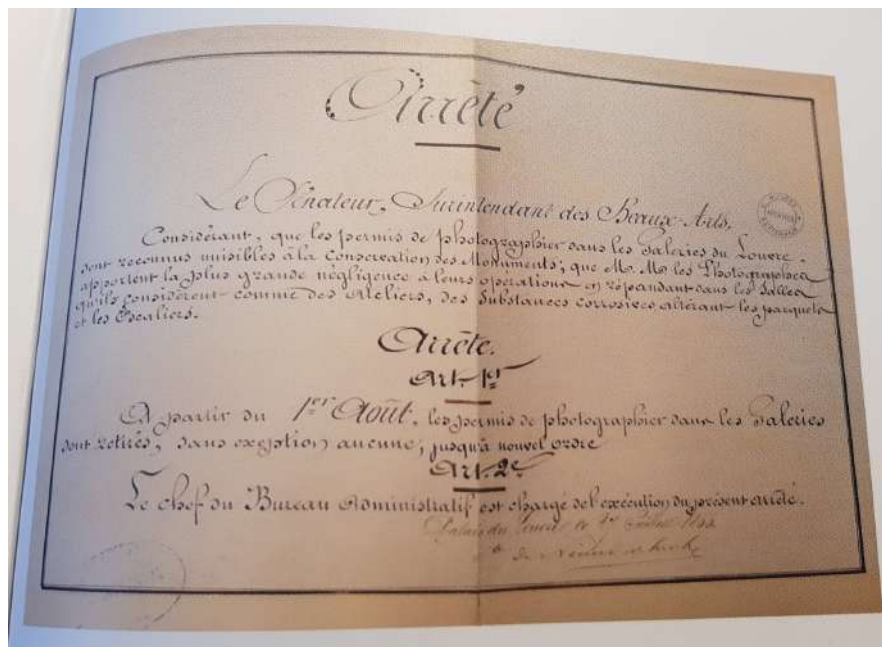 Arrêté
Le Sénateur, Surintendant des Beaux-Arts,
Considérant, que les permis de photographier dans les Galeries du Louvre.
sont reconnus nuisibles à la conservation des Monuments; que M. M. les Photographes
apportent la plus grande négligence à leurs operations en répandant dans les Salles
qu'ils considèrent comme des Ateliers, des Substances corrosives altérant les parquets
et les Escaliers.
Arrête.
Art. 1er
A partir du 1er Août, les permis de photographier dans les Galeries
sont retirés, sans exeption aucune, jusqu'à nouvel ordre
Art. 2e
Le chef du Bureau Administratif est chargé de l'exécution du présent arrêté.
Palais du Louvre le
de Nieuwerkerke